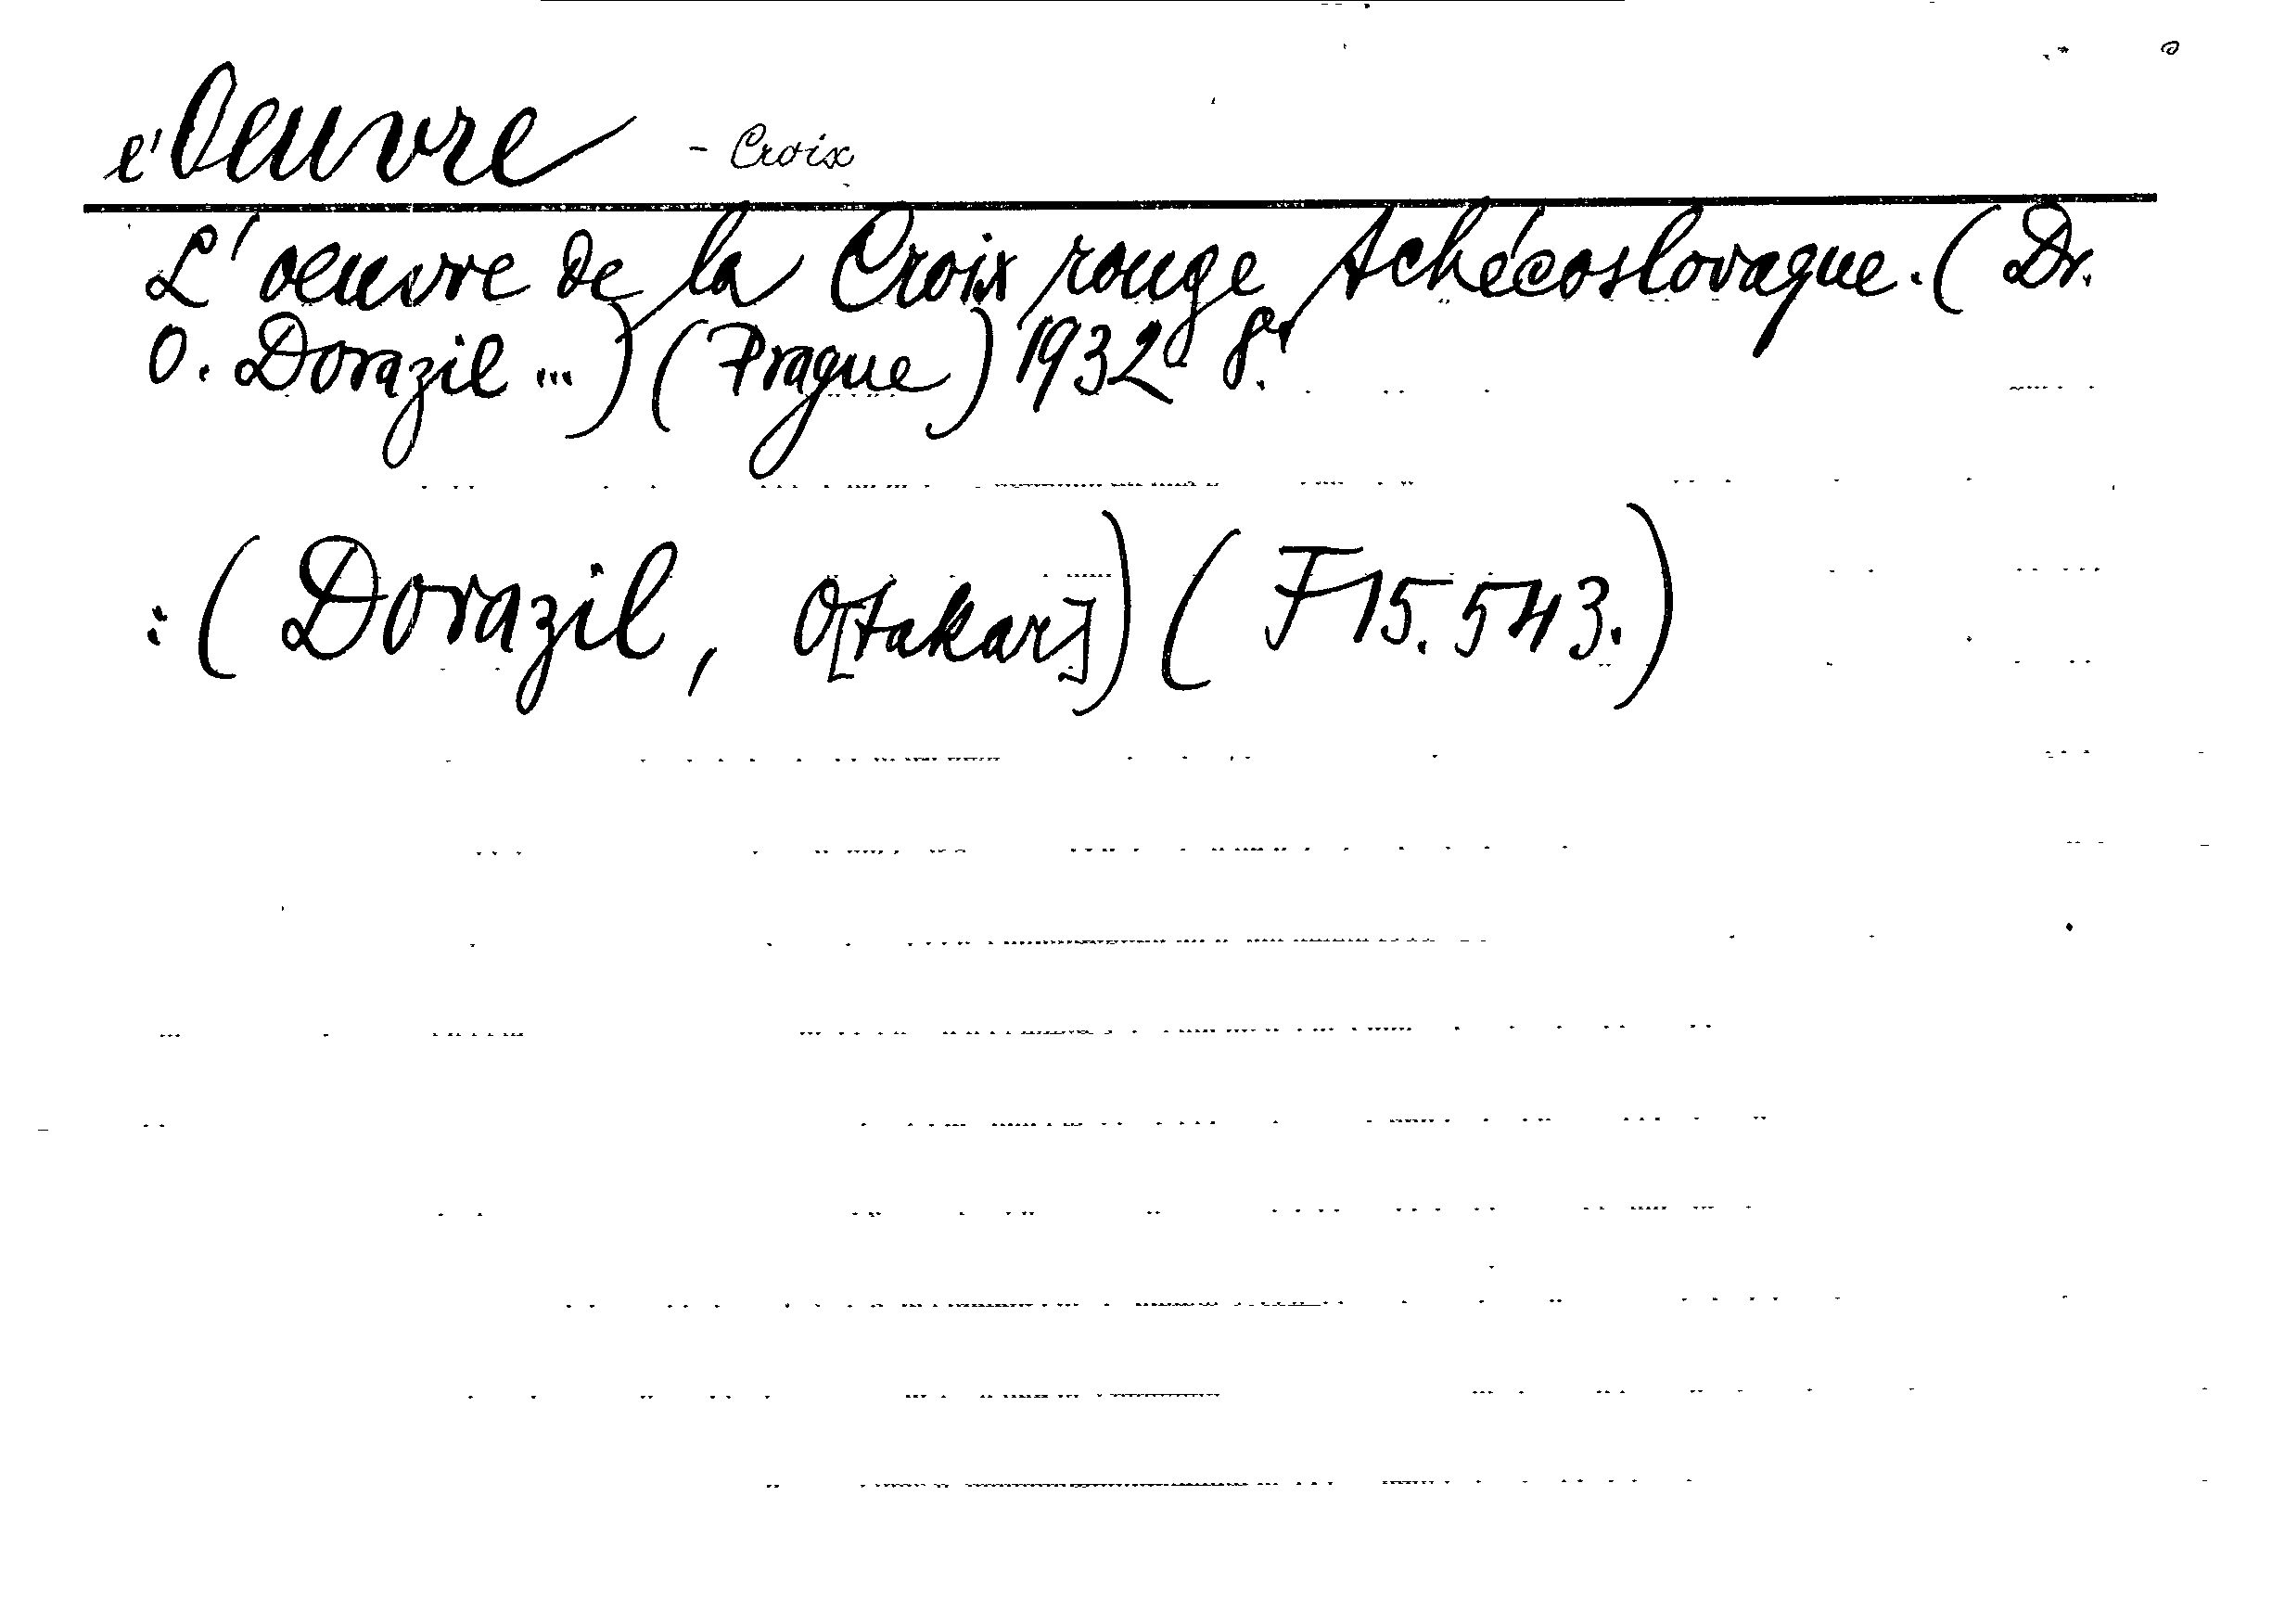 l'Oeuvre - Croix
L'oeuvre de la Croix rouge tchécoslovaque. (Dr.
O. Dorazil ...) (Prague) 1932 8°.
: (Dorazil, O[takar]) (F 15.543.)